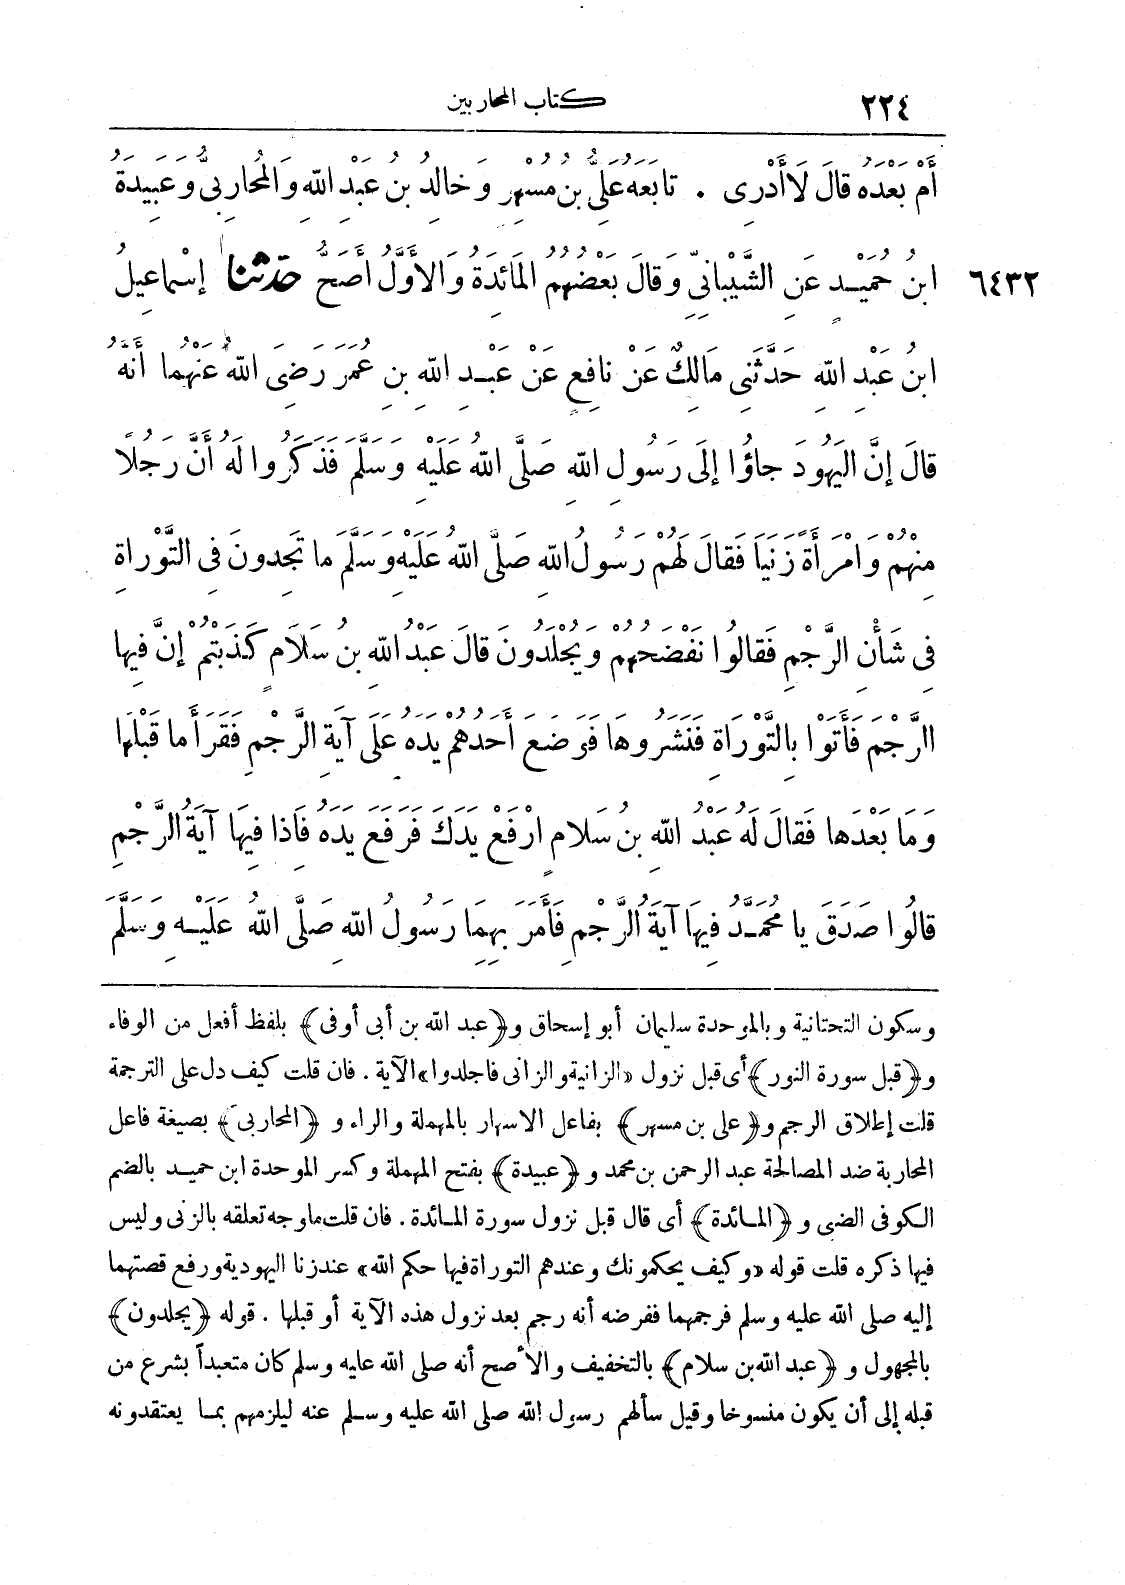 ٢٢٤ كتاب المحاربين
أَمْ بَعْدَهُ قَالَ لَا أَدْرِى . تَابَعَهُ عَلِىُّ بنُ مُسْهِرٍ وَخالِدُ بنُ عَبْدِ اللهِ وَالْمُحَارِبِىُّ وَعَبِيدَةُ
٦٤٣٢ ابنُ حُمَيْدٍ عَنِ الشَّيْبَانِىِّ وَقَالَ بَعْضُهُمُ الْمَائِدَةُ وَالأَوَّلُ أَصَحُّ حَدَّثَنَا إسْمَاعِيلُ
ابنُ عَبْدِ اللهِ حَدَّثَنِى مَالِكٌ عَنْ نافِعٍ عَنْ عَبْدِ اللهِ بنِ عُمَرَ رَضِىَ اللهُ عَنْهُما أَنَّهُ
قالَ إنَّ اليَهُودَ جاؤُا إِلَى رَسُولِ اللهِ صَلَّى اللهُ عَلَيْهِ وَسَلَّمَ فَذَكَرُوا لَهُ أَنَّ رَجُلًا
مِنْهُمْ وَامْرَأَةً زَنَيَا فَقالَ لَهُمْ رَسُولُ اللهِ صَلَّى اللهُ عَلَيْهِ وَسَلَّمَ ما تَجِدُونَ فِى التَّوْرَاةِ
فِى شَأْنِ الرَّجْمِ فَقالُوا نَفْضَحُهُمْ وَيُجْلَدُونَ قالَ عَبْدُ اللهِ بنُ سَلَامٍ كَذَبْتُمْ إنَّ فِيها
الرَّجْمَ فَأَتَوْا بِالتَّوْرَاةِ فَنَشَرُوهَا فَوَضَعَ أَحَدُهُمْ يَدَهُ عَلَى آيَةِ الرَّجْمِ فَقَرَأَ ما قَبْلَهَا
وَمَا بَعْدَها فَقالَ لَهُ عَبْدُ اللهِ بنُ سَلَامٍ ارْفَعْ يَدَكَ فَرَفَعَ يَدَهُ فَاذا فِيهَا آيَةُ الرَّجْمِ
قالُوا صَدَقَ يا مُحَمَّدُ فِيهَا آيَةُ الرَّجْمِ فَأَمَرَ بِهِمَا رَسُولُ اللهِ صَلَّى اللهُ عَلَيْهِ وَسَلَّمَ
وسكون التحتانية وبالموحدة سليمان أبو إسحاق و﴿عبد الله بن أبى أوفى﴾ بلفظ أفعل من الوفاء
و﴿قبل سورة النور﴾ أى قبل نزول «الزانية والزانى فاجلدوا» الآية . فان قلت كيف دل على الترجمة
قلت إطلاق الرجم و﴿على بن مسهر﴾ بفاعل الاسهار بالمهملة والراء و ﴿المحاربى﴾ بصيغة فاعل
المحاربة ضد المصالحة عبد الرحمن بن محمد و ﴿عبيدة﴾ بفتح المهملة وكسر الموحدة ابن حميد بالضم
الكوفى الضبى و ﴿المائدة﴾ أى قال قبل نزول سورة المائدة . فان قلت ماوجه تعلقه بالزنى وليس
فيها ذكره قلت قوله «وكيف يحكمونك وعندهم التوراة فيها حكم الله» عند زنا اليهودية ورفع قصتهما
إليه صلى الله عليه وسلم فرجمهما ففرضه أنه رجم بعد نزول هذه الآية أو قبلها . قوله ﴿يجلدون﴾
بالمجهول و ﴿عبد الله بن سلام﴾ بالتخفيف والأصح أنه صلى الله عليه وسلم كان متعبداً بشرع من
قبله إلى أن يكون منسوخا وقيل سألهم رسول الله صلى الله عليه وسلم عنه ليلزمهم بما يعتقدونه